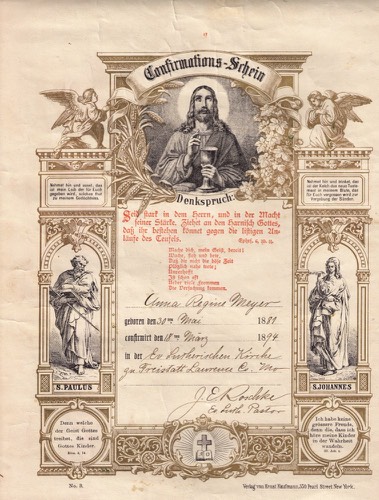 Confirmations-Schein
Nehmet hin und esset, das
ist mein Leib der für Euch
gegeben wird, solches thut
zu meinem Gedächtniss.
Nehmet hin und trinket, das
ist der Kelch des neue Testa-
ment in meinem Blute, das
für Euch vergossen wird zur
Vergebung der Sünden.
Denkspruch:
Seid stark in dem Herrn, und in der Macht
seiner Stärke. Ziehet an den Harnisch Gottes,
daß ihr bestehen könnet gegen die listigen An-
läufe des Teufels.
Ephes. 6, 10. 11.
Mache dich, mein Geist, bereit!
Wache, fleh und bete,
Daß dir nicht die böse Zeit
Plötzlich nahe trete;
Unverhofft
Ist schon oft
Ueber viele Frommen
Die Versuchung kommen.
Anna Regine Meyer
geboren den 30ten Mai 1881.
confirmirt den 18ten März 1894.
in der Ev Lutherischen Kirche
zu Freistatt Lawrence Co. Mo
J. E. Roschke
Ev. Luth. Pastor
S. PAULUS
S. JOHANNES
Denn welche
der Geist Gottes
treibet, die sind
Gottes Kinder.
Röm. 8, 14.
Ich habe keine
grössere Freude,
denn die, dass ich
höre meine Kinder
in der Wahrheit
wandeln.
No. 3.
Verlag von Ernst Kaufmann, 330 Pearl Street New York.